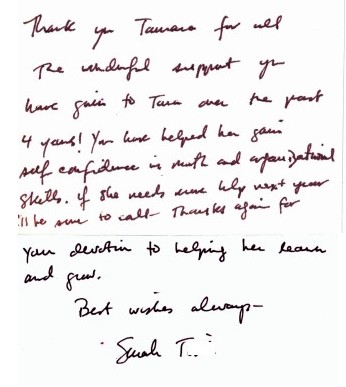 Thank you Tamara for all
the wonderful support you
have given to Tara over the past
4 years! You have helped her gain
self confidence in math and organizational
skills. If she needs more help next year
I'll be sure to call. Thanks again for
your devotion to helping her learn
and grow.
Best wishes always—
Sarah T..